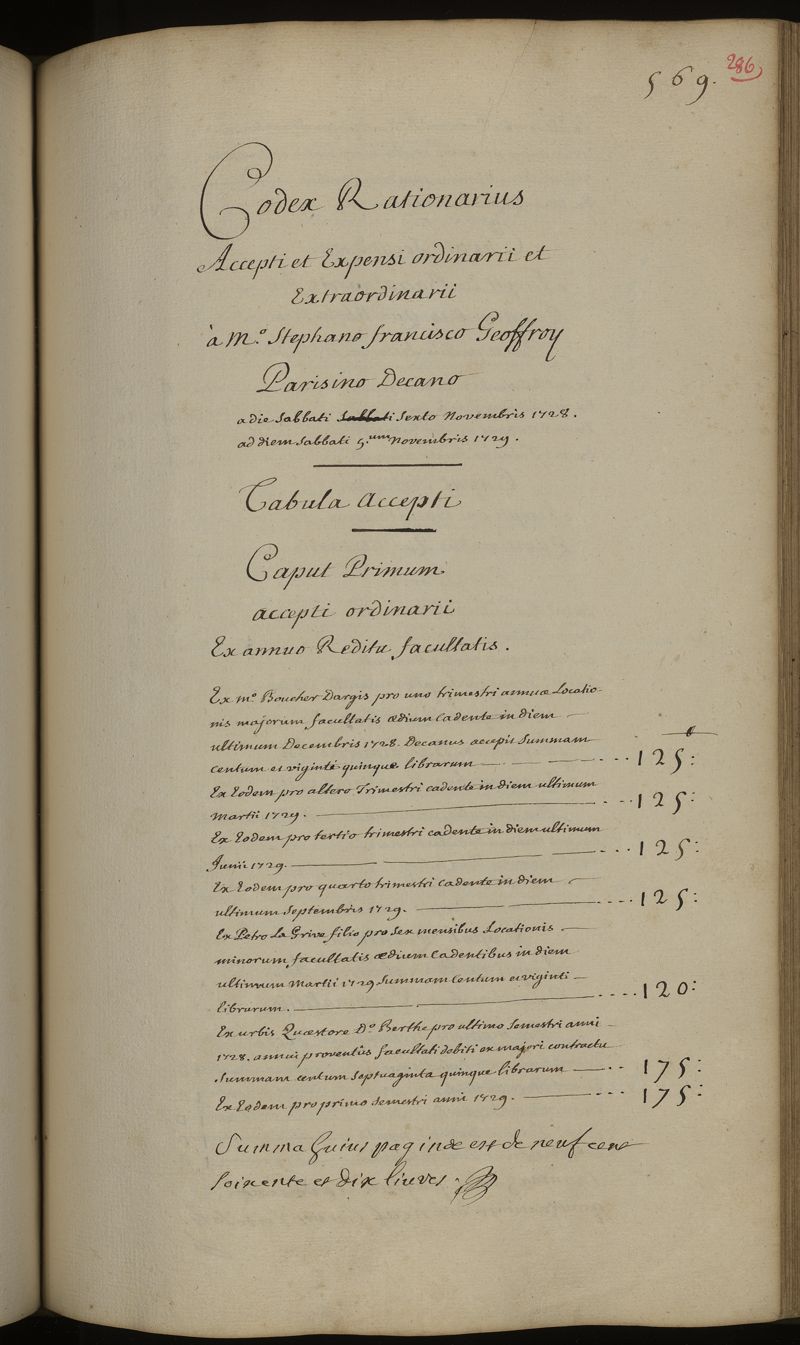 569. 286
Codex Rationarius
Accepti et Expensi ordinarii et
Extraordinarii
à M.o Stephano francisco Geoffroy
Parisino Decano
a die Sabbati Sabbati Sexto Novembris 1728.
ad diem Sabbati 5.um Novembris 1729.
Tabula Accepti
Caput Primum
accepti ordinarii
Ex annuo Reditu facultatis.
Ex M.o Boucher Dargis pro uno trimestri annuæ Locatio-
nis majorum facultatis ædium Cadente in diem
ultimum Decembris 1728. Decanus accepit Summam
centum et viginti quinque librarum 125:
Ex Eodem pro altero Trimestri cadente in diem ultimum
Martii 1729. 125:
Ex Eodem pro tertio trimestri cadente in diem ultimum
Junii 1729. 125:
Ex Eodem pro quarto trimestri Cadente in diem
ultimum Septembris 1729. 125:
Ex Petro La Grive filio pro Sex mensibus Locationis
minorum facultatis ædium Cadentibus in diem
ultimum Martii 1729 Summam Centum et viginti
librarum. 120:
Ex urbis Quæstore D.o Berthe pro ultimo Semestri anni
1728. annui proventûs facultati debiti ex majori contractu
Summam centum Septuaginta quinque librarum 175:
Ex Eodem pro primo Semestri anni 1729. 175:
Summa huius paginæ est de neuf cent
soixente et dix liures.